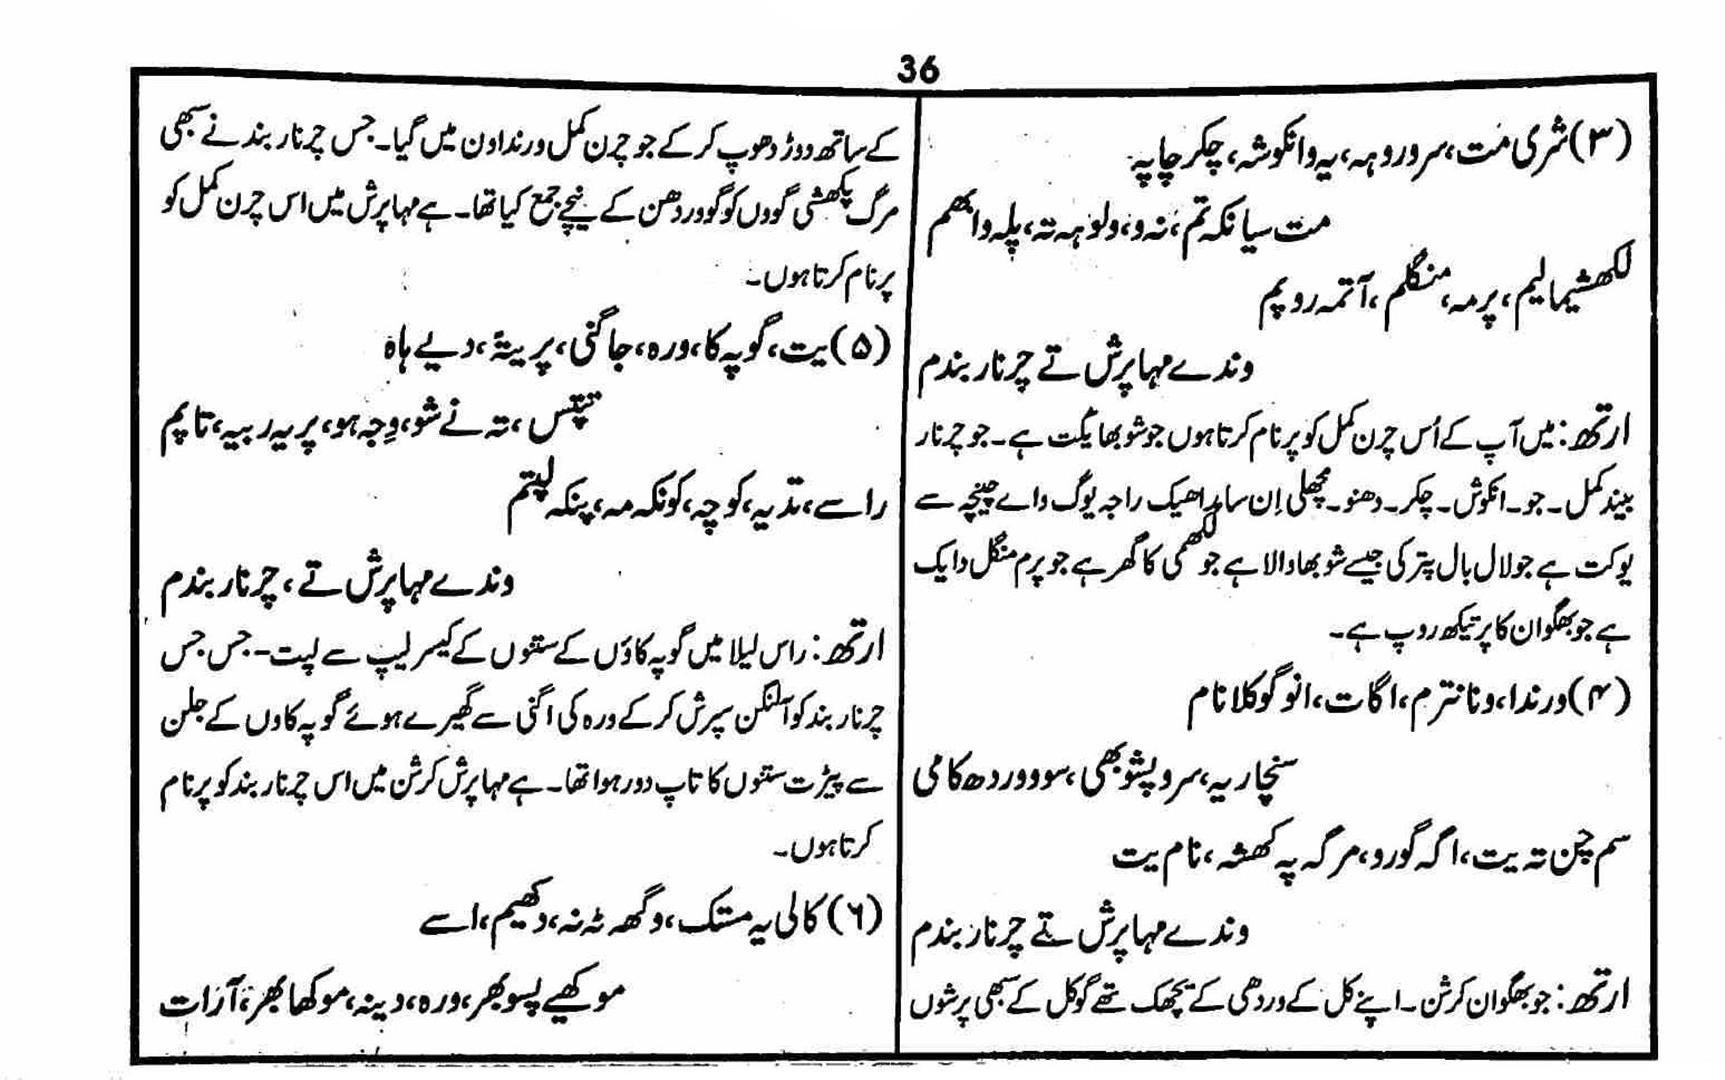 36
(۳) شری مت، سروروہہ، یہ وانکوشہ، چکر چاپہ
مت سیانکہ تم، نہ و، ولوہہ تہ، پلہ وابھم
لکھشیمالیم، پرمہ، منگلم، آتمہ روپم
وندے مہاپرش تے چرنار بندم
ارتھ: میں آپ کے اُس چرن کمل کو پرنام کرتا ہوں جو شوبھا یکت ہے۔ جو چرنار
بیند کمل۔ جو۔ انکوش۔ چکر۔ دھنو۔ مچھلی اِن راجہ یوگ واے چینچہ سے
یوکت ہے جو لال بال پتر کی جیسے شوبھا والا ہے جو لکھمی کا گھر ہے جو پرم منگل دایک
ہے جو بھگوان کا پرتیکھ روپ ہے۔
(۴) ورندا، ونانترم، اگات، انوگوکلانام
سنچاریہ، سروپشوبھی، سوووردھ کامی
سم چن تہ یت، اگہ گورو، مرگہ پہ کھشہ، نام یت
وندے مہاپرش تے چرنار بندم
ارتھ: جو بھگوان کرشن۔ اپنے کل کے وردھی کے یچھک تھے گوکل کے سبھی پرشوں
کے ساتھ دوڑ دھوپ کر کے جو چرن کمل ورنداون میں گیا۔ جس چرنار بند نے سبھی
مرگ پکھشی گووں کو گووردھن کے نیچے جمع کیا تھا۔ ہے مہاپرش میں اس چرن کمل کو
پرنام کرتا ہوں۔
(۵) یت، گوپہ کا، ورہ، جاگنی، پریتہٗ، دیے ہاہ
تپتس، تہ نے شو، وِجہ ہو، پریہ ربیہ، تاپم
راسے، تدیہ، کوچہ، کونکہ مہ، پنکہ لپتم
وندے مہاپرش تے، چرنار بندم
ارتھ: راس لیلا میں گوپہ کاؤں کے ستنوں کے کیسر لیپ سے لپت۔ جس جس
چرنار بند کو آلنگن سپرش کر کے ورہ کی اگنی سے گھیرے ہوئے گوپہ کاوں کے جلن
سے پیڑت ستنوں کا تاپ دور ہوا تھا۔ ہے مہاپرش کرشن میں اس چرنار بند کو پرنام
کرتا ہوں۔
(۶) کالی یہ مستک، وگھہ ٹہ نہ، دکھیم، اسے
موکھیے پسوبھر، ورہ، دینہ، موکھا بھر، آرات